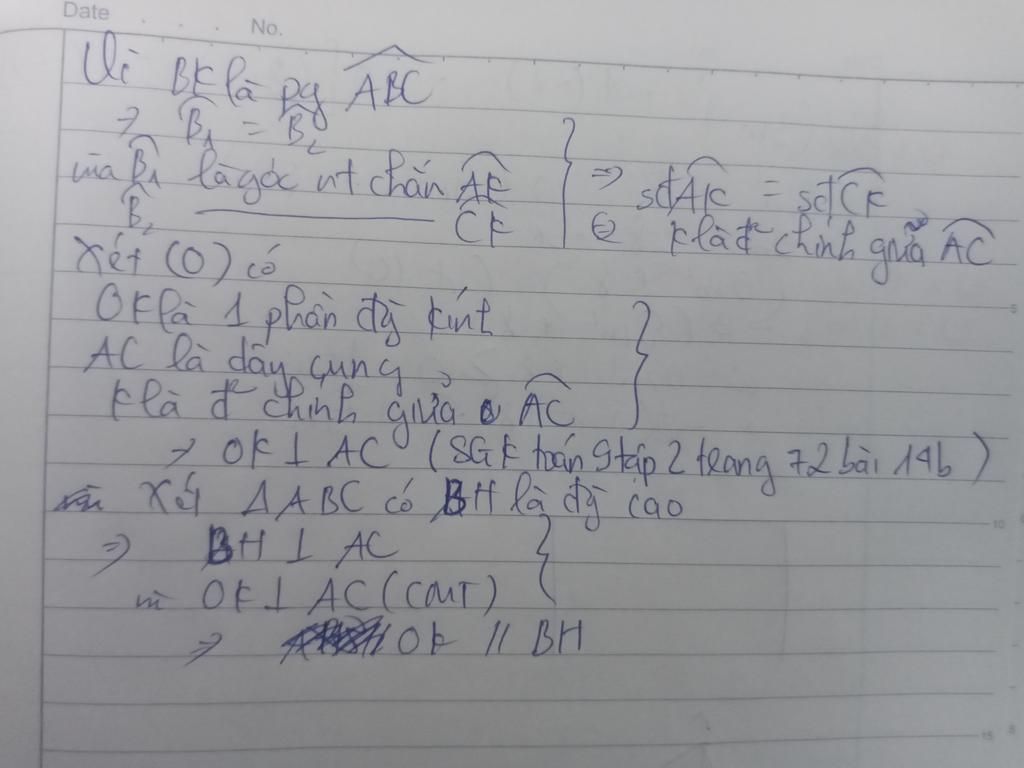 Date . . .
No.
Vì BK là pg ABC
=> B1 = B2
mà B1 là góc nt chắn AK
B2 ——— CK
=> sđAK = sđCK
K là đ' chính giữa AC
Xét (O) có
OK là 1 phần đg kính
AC là dây cung
K là đ' chính giữa AC
=> OK ⊥ AC (SGK toán 9 tập 2 trang 72 bài 14b)
Xét Δ ABC có BH là đg cao
=> BH ⊥ AC
mà OK ⊥ AC (CMT)
=> OK // BH
5
10
15